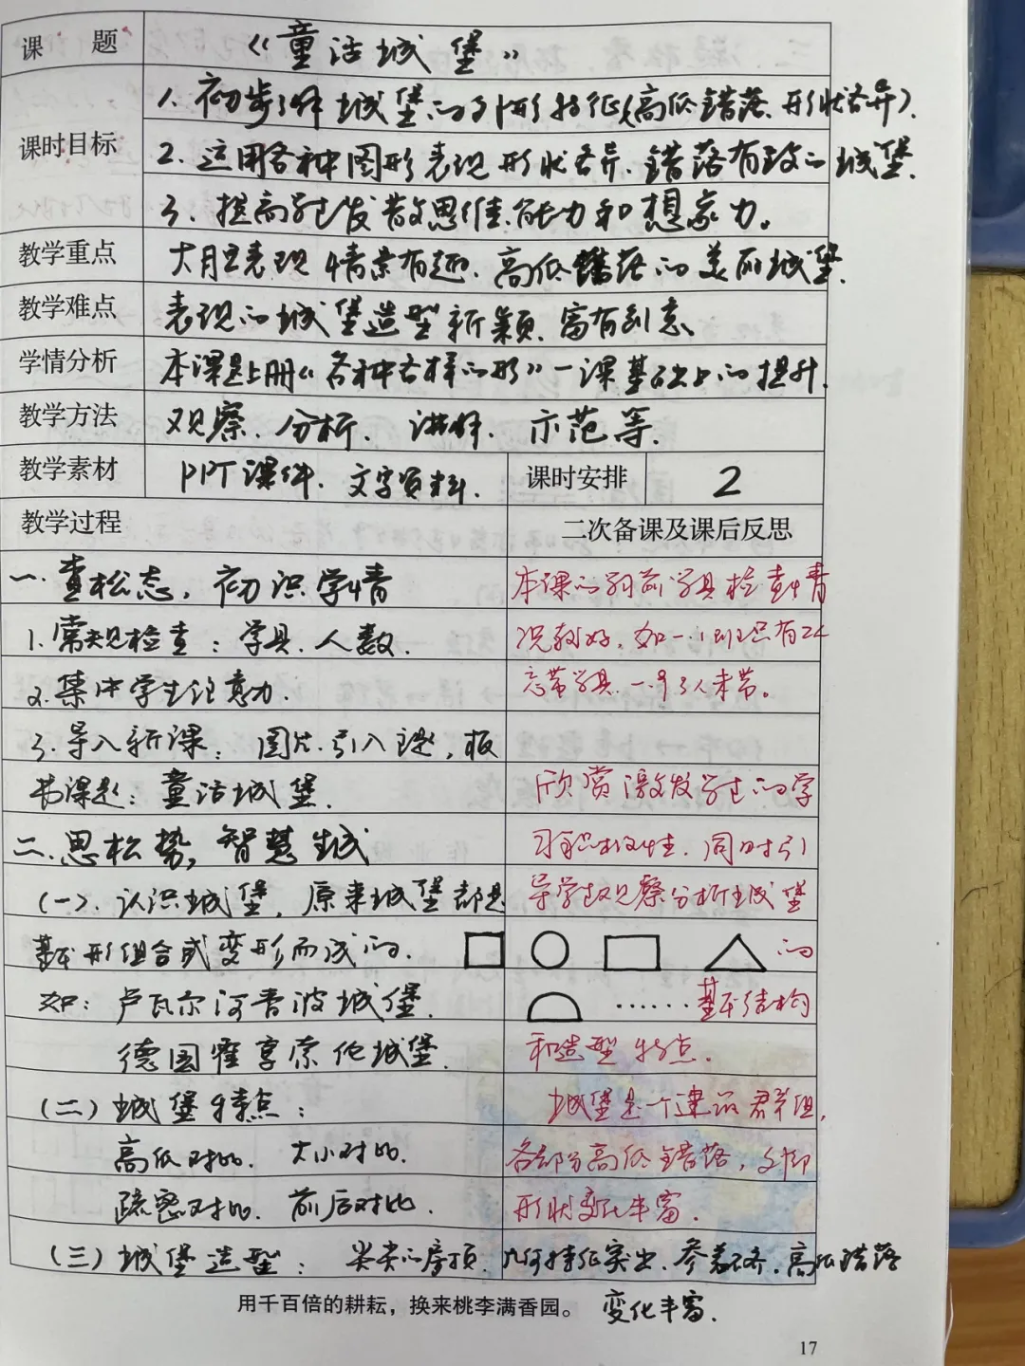 课 题 《童话城堡》
课时目标
1. 初步了解城堡的外形特征(高低错落、形状各异).
2. 运用各种图形表现形状各异、错落有致的城堡.
3. 提高学生发散思维能力和想象力。
教学重点 大胆表现情景有趣、高低错落的美丽城堡.
教学难点 表现的城堡造型新颖、富有创意、
学情分析 本课是上册《各种各样的形》一课基础上的提升.
教学方法 观察、分析、讲解、示范等.
教学素材 PPT课件、文字资料. 课时安排 2
教学过程 二次备课及课后反思
一. 查松态, 初识学情
1. 常规检查: 学具、人数.
2. 集中学生注意力.
3. 导入新课: 图片引入课题, 板
书课题: 童话城堡.
二. 思松势, 智慧生成
(一). 认识城堡, 原来城堡都是
基本形组合或变形而成的.
如: 卢瓦尔河香波城堡.
德国霍亨索伦城堡.
(二) 城堡特点:
高低对比、大小对比.
疏密对比、前后对比.
(三) 城堡造型: 尖尖的房顶、几何特征突出、参差不齐、高低错落
变化丰富.
本课的课前学具检查情
况较好, 如一1班只有2人
忘带学具, 一93人未带。
欣赏激发学生的学
习积极性, 同时引
导学生观察分析城堡
的
…… 基本结构
和造型特点.
城堡是一个建筑群组,
各部分高低错落,
形状变化丰富.
用千百倍的耕耘，换来桃李满香园。
17